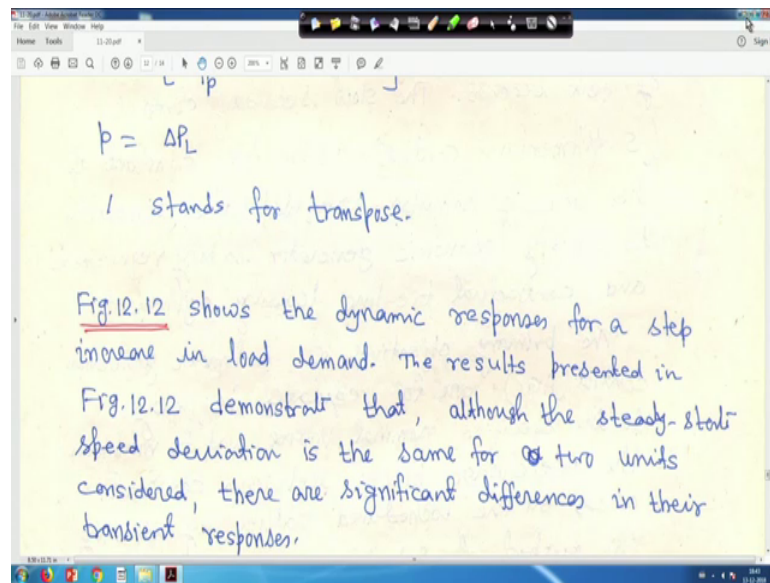 11-20.pdf - Adobe Acrobat Reader DC
File Edit View Window Help
Home Tools 11-20.pdf × Sign
12 / 16
p = ΔPL
/ stands for transpose.
Fig. 12.12 shows the dynamic responses for a step
increase in load demand. The results presented in
Fig. 12.12 demonstrate that, although the steady-state
speed deviation is the same for two units
considered, there are significant differences in their
transient responses.